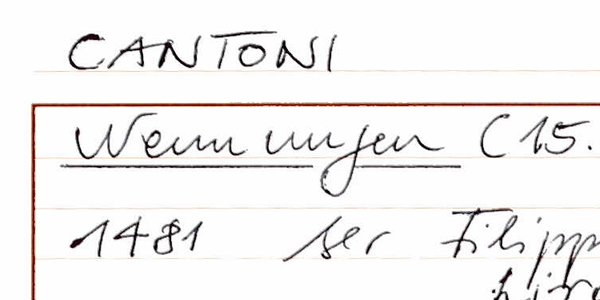 CANTONI
Nennungen (15.
1481 ser Filipp